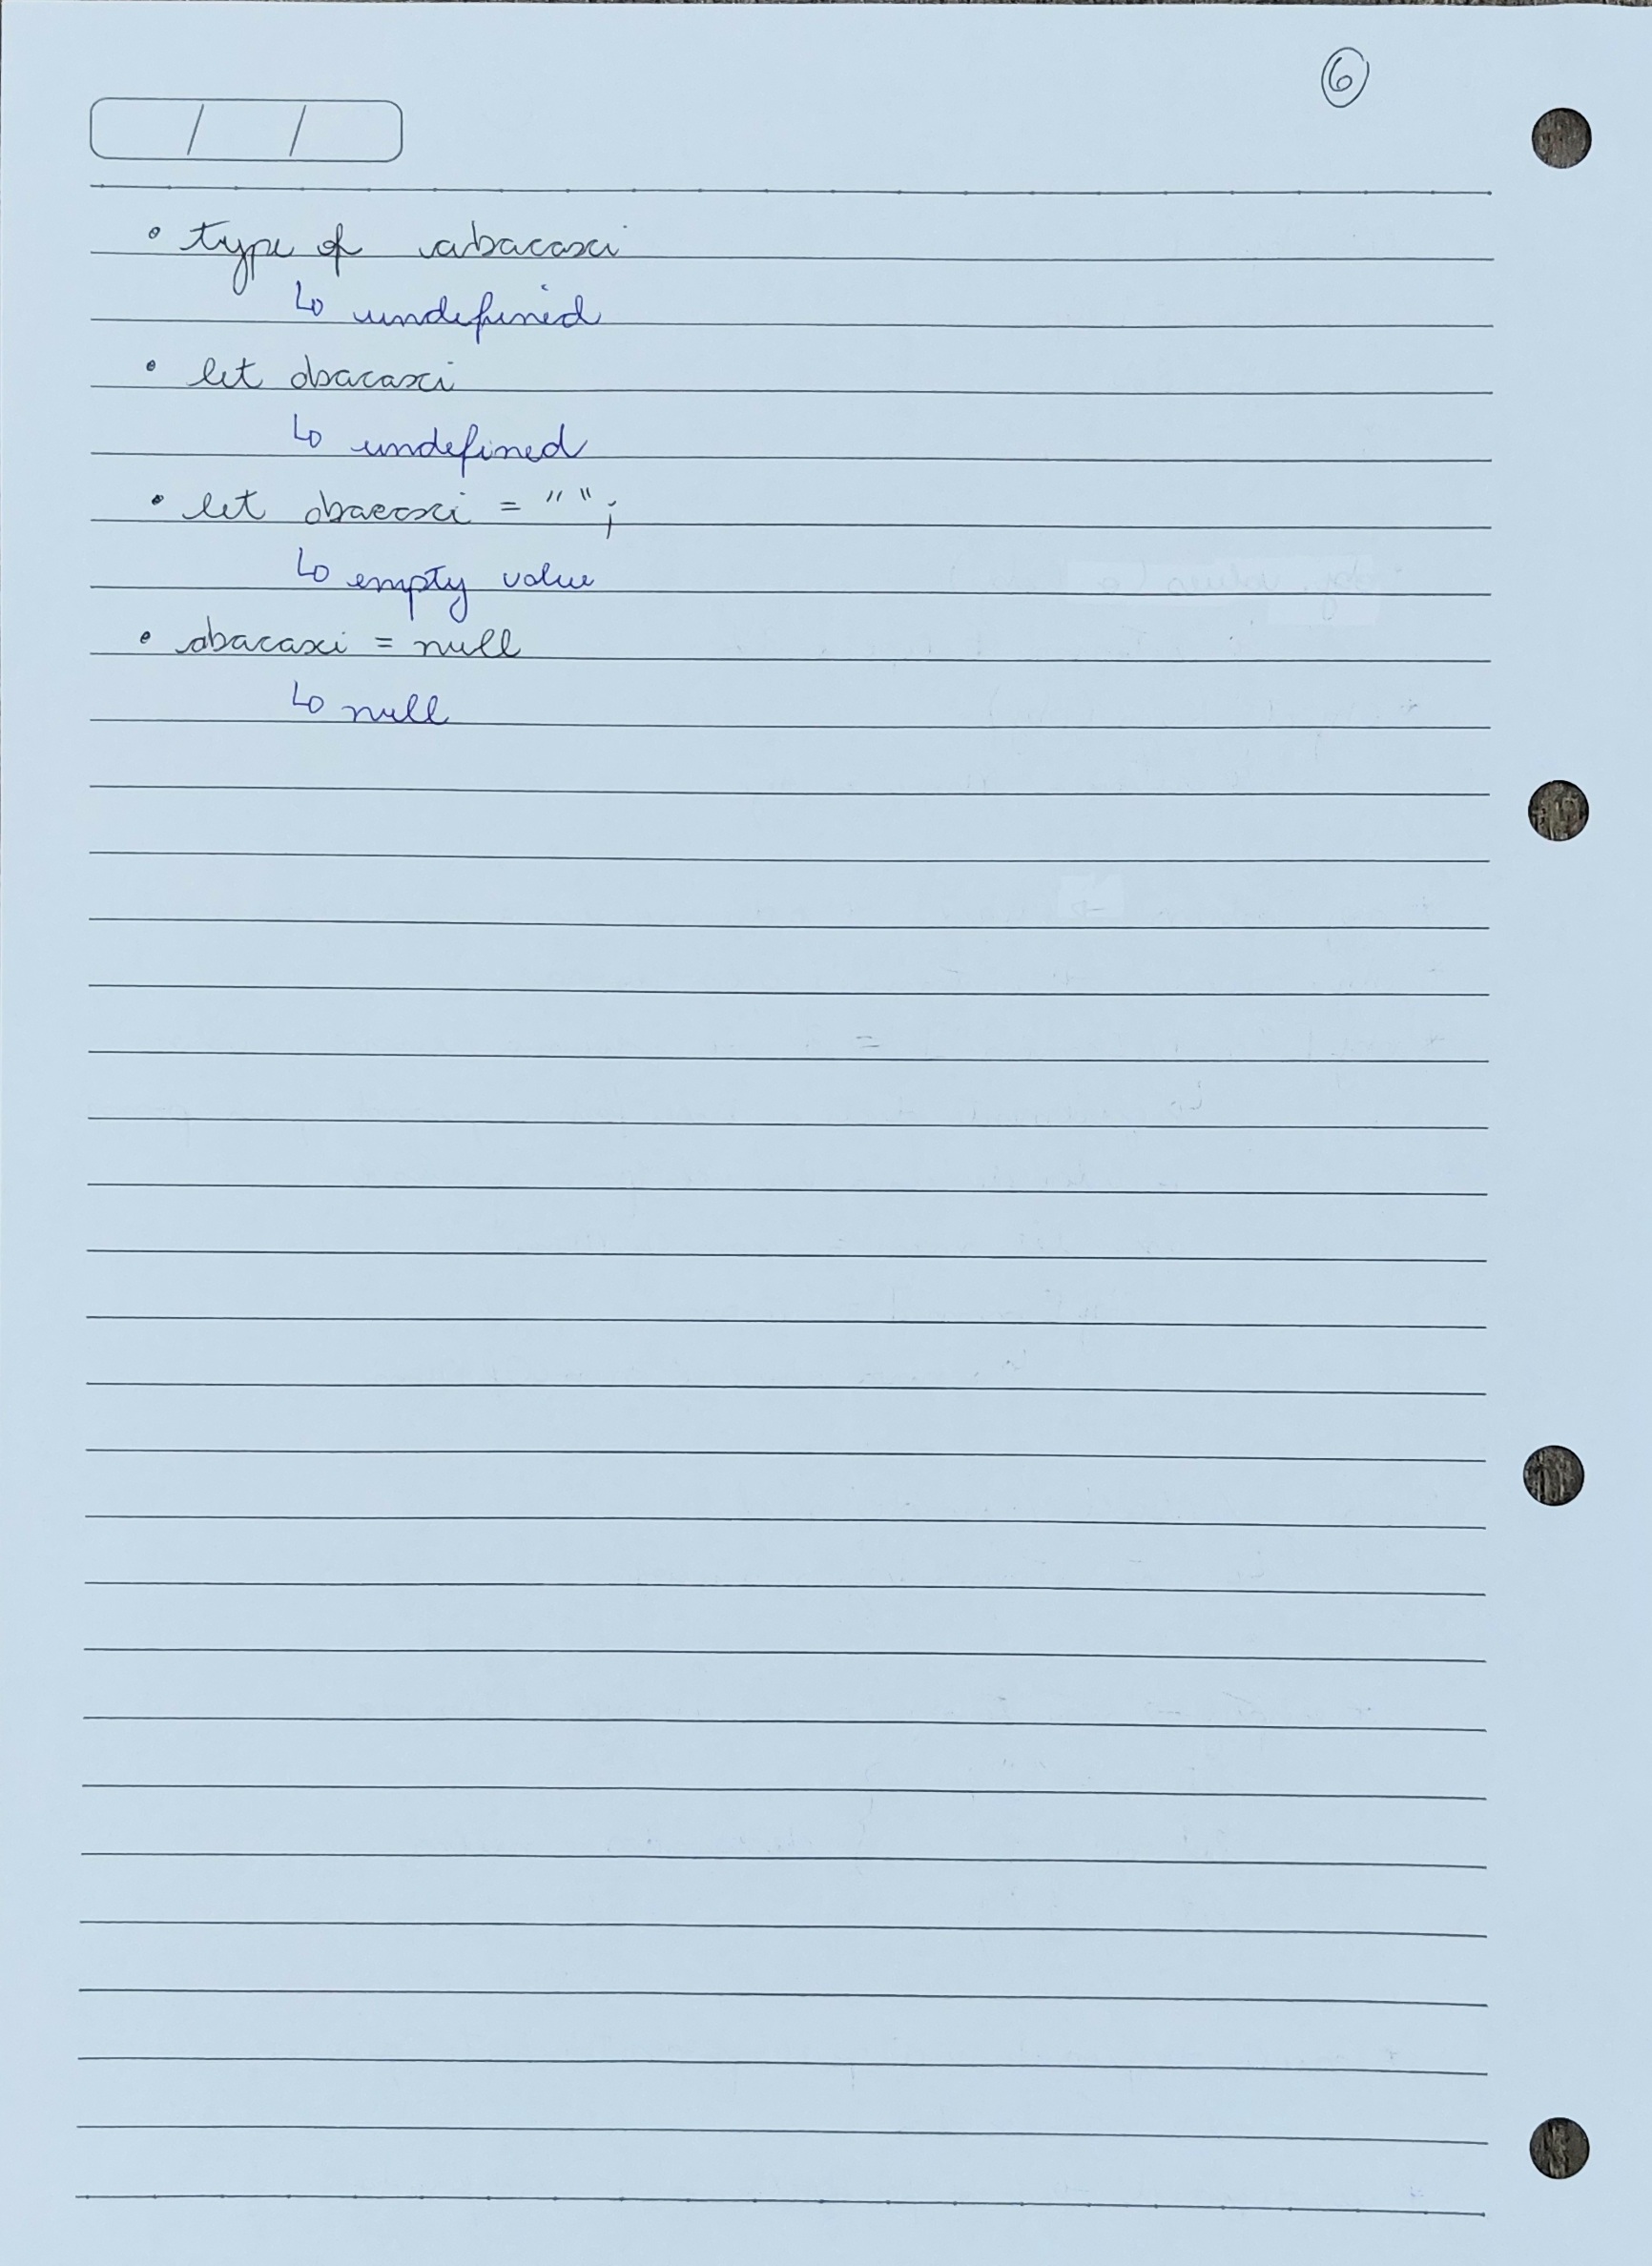 6
• type of abacaxi
↳ undefined
• let abacaxi
↳ undefined
• let abacaxi = " " ;
↳ empty value
• abacaxi = null
↳ null